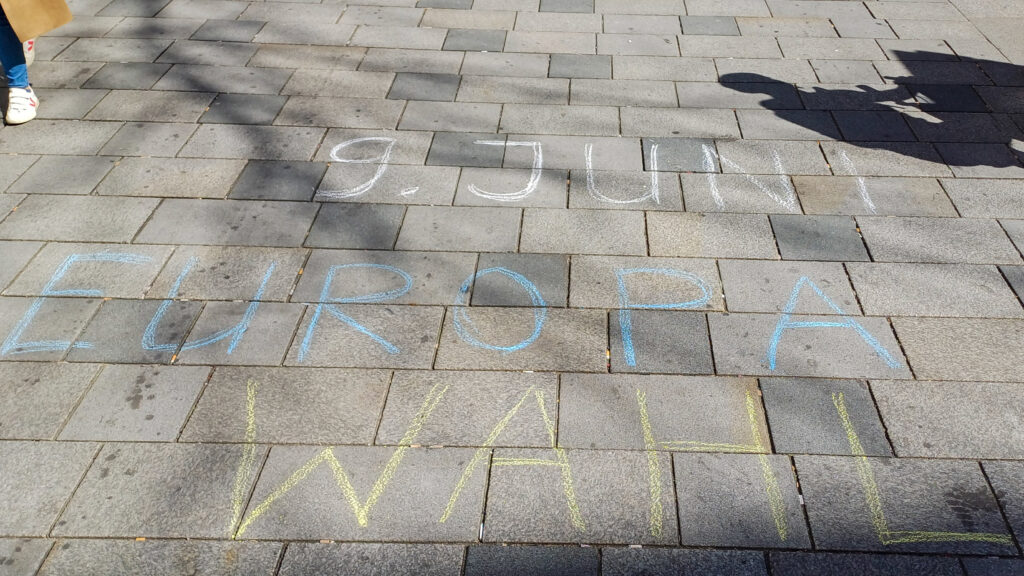 9. JUNI
EUROPA
WAHL